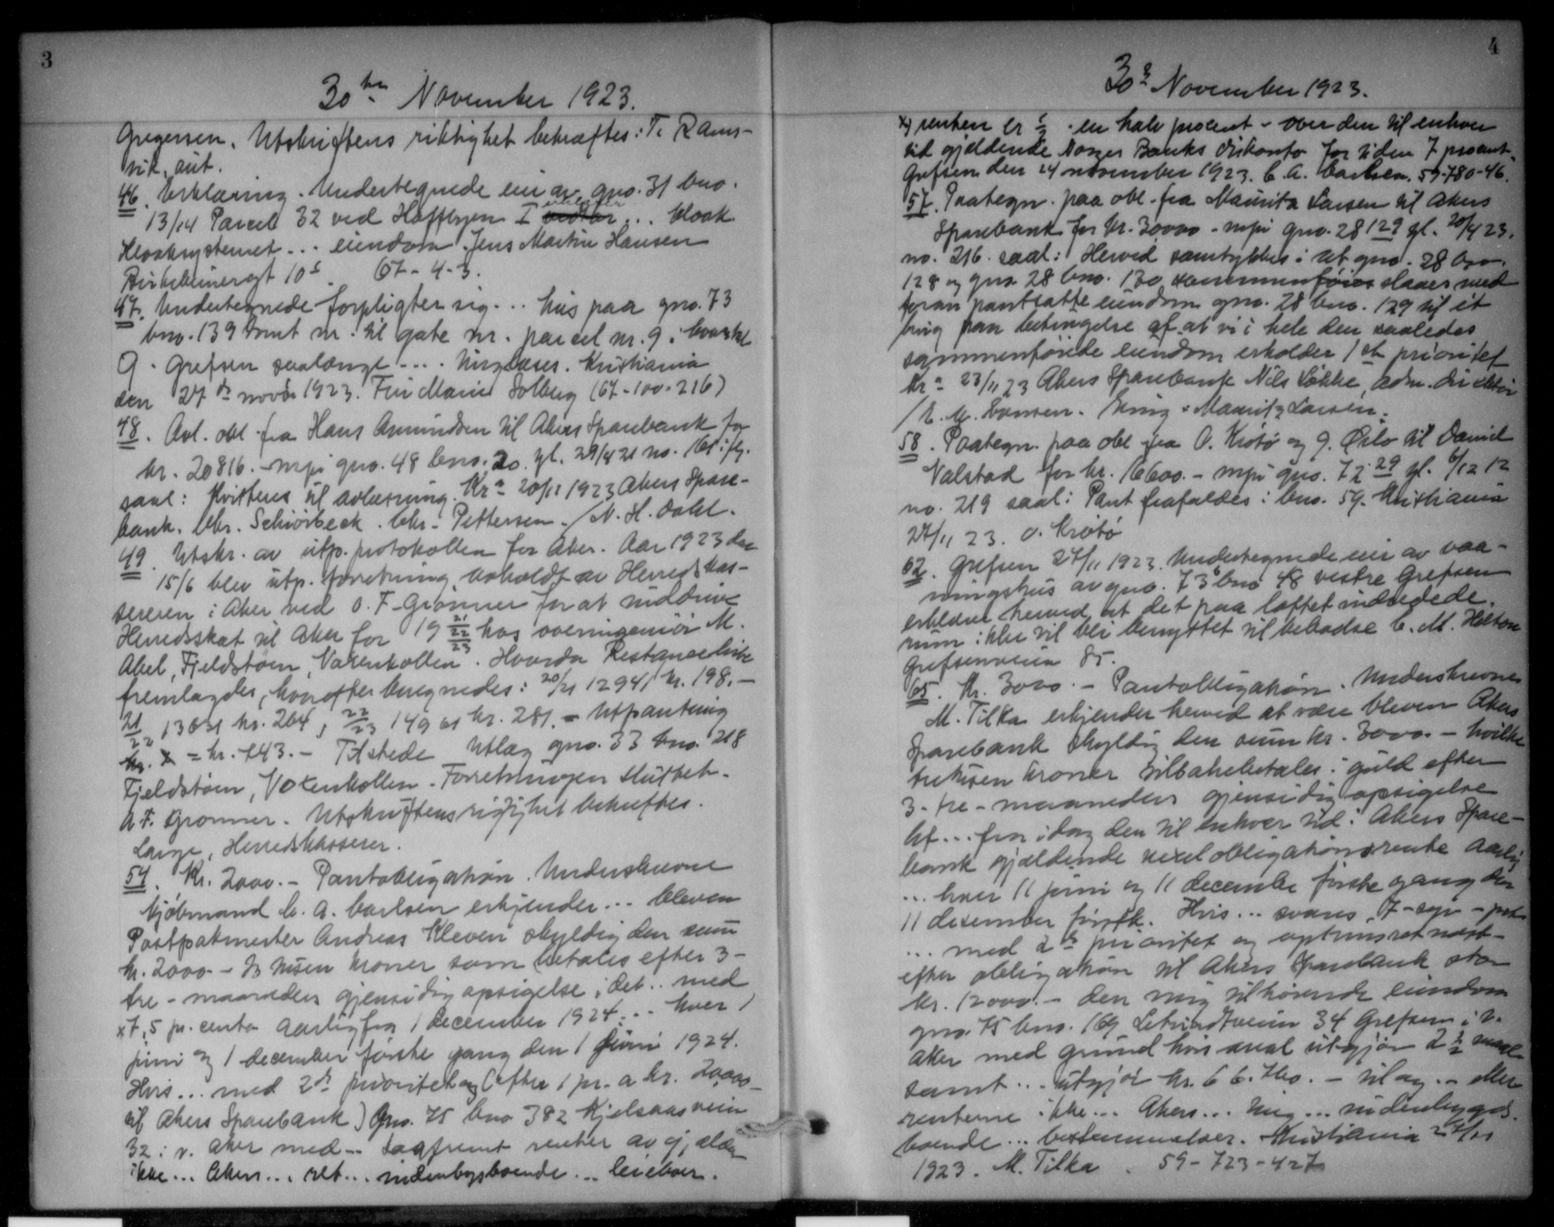 3
30te November 1923.
Gregersen. Utskriftens riktighet bekræftes: T. Rams-
vik, aut.
46. Erklæring. Undertegnede eier av gno. 31 bno.
13/14 Parcel 32 ved Hoffsveien I ... kloak
kloaksystemet ... eiendom Jens Martin Hansen
Birkebeinergt 10 67-4-3.
47. Undertegnede forpligter sig ... hus paa gno. 73
bno. 139 tomt nr. til gate nr. parcel nr. 9.
9. Grefsen saalænge ... tinglæses. Kristiania
den 27de novbr 1923. Marie Solberg (67-100-216)
48. Avl. obl. fra Hans Amundsen til Akers Sparebank for
kr. 20816.- mpi gno. 48 bno. 20. gl. 29/4 21 no. 161
saal: Kvitteres til avlæsning. Kra 20/11 1923 Akers Spare-
bank. Chr. Schiørbeck. Chr. Pettersen. / N. H. Dahl.
49. Utskr. av utp. protokollen for Aker. Aar 1923 den
15/6 blev utp. forretning avholdt av Herredskas-
sereren i Aker ved O. F. Grønner for at inddrive
Herredsskat til Aker for 19 21/22 22/23 hos overingeniør M.
Abel, Fjeldstøen, Voxenkollen. Hvorda Restanceliste
fremlagdes, hvorefter beregnedes: 20/21 12941 kr. 198.-
21/22 13631 kr. 264, 22/23 14961 kr. 281.- Utpantning
= kr. 743.- Tilstede Utlæg gno. 33 bno. 218
Fjeldstøen, Voxenkollen. Forretningen sluttet.
O. F. Grønner. Utskriftens rigtighet bekræftes.
Lange, Herredskasserer.
54. Kr. 2000.- Pantobligation. Underskrevne
kjøbmand C. A. Carlsen erkjender ... bleven
Postpakmester Andreas Kleven skyldig den sum
kr. 2000.- To tusen kroner som betales efter 3-
tre-maaneders gjensidig opsigelse, det .. med
x 7,5 pr. cento aarlig fra 1 december 1924 ... hver 1
juni og 1 december første gang den 1 juni 1924.
Hvis ... med 2den prioritet og (efter 1 pr. a kr. 20,000-
til Akers Sparebank) Gno. 75 bno 382 Kjelsaasveien
32 i v. Aker med ... Laafremt renter av ej ælder
ikke ... Akers ... ret ... indenbygsboende ... leieboer.
4
30te November 1923.
x) renten er 1/2 - en halv procent - over den til enhver
tid gjældende Norges Banks diskonto for tiden 7 procent.
Grefsen den 14 november 1923. C. A. Carlsen. 59-780-46.
57. Paategn. paa obl. fra Mauritz Larsen til Akers
Sparebank for kr. 30000.- mpi gno. 28 129 gl. 20/4 23.
no. 216. saal: Herved samtykkes i at gno. 28 bno.
128 og gno. 28 bno. 130 sammenføies slaaes med
foran pantsatte eiendom gno. 28 bno. 129 til et
brug paa betingelse af at vi i hele den saaledes
sammenføiede eiendom erholder 1ste prioritet
Kra 23/11 23 Akers Sparebank Nils Løkke, adm. direktør
/ Ting. Mauritz Larsen.
58. Paategn. paa obl fra O. Krotø og J. Oslo til Daniel
Valstad for kr. 16600.- mpi gno. 72 29 gl. 6/12 12
no. 219 saal: Pant frafaldes i bno. 59. Kristiania
27/11 23. O. Krotø
62. Grefsen 27/11 1923. Undertegnede eier av vaa-
ningshus av gno. 73 bno 48 vestre Grefsen
erklærer herved at det paa loftet indredede
rum ikke vil bli benyttet til beboelse C. M. Holtom
Grefsenveien 85.
65. Kr. 3000.- Pantobligation. Underskrevne
M. Tilka erkjender herved at være bleven Akers
Sparebank skyldig den sum kr. 3000.- hvilke
tretusen kroner tilbakebetales i guld efter
3-tre-maaneders gjensidig opsigelse
At ... fra idag den til enhver tid i Akers Spare-
bank gjældende vexelobligationsrente aarlig
... hver 11 juni og 11 december første gang den
11 december førstk. Hvis ... svares 7-syv-pct.
... med 2den prioritet og optrinsret næst-
efter obligation til Akers Sparebank stor
kr. 12000.- den mig tilhørende eiendom
gno. 75 bno. 169 34 Grefsen i v.
Aker med grund hvis areal utgjør 2 1/2 maal
samt ... utgjør kr. 66.760.- til og .. eller
renterne ikke ... Akers ... mig ... indenbygds
boende ... bestemmelser. Kristiania 27/11
1923. M. Tilka. 59-723-427